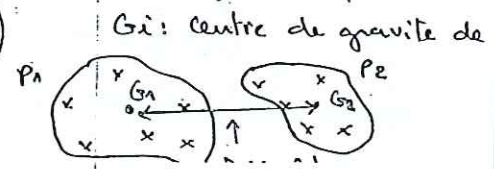 Gi : centre de gravite de
P1 P2
G1 G2